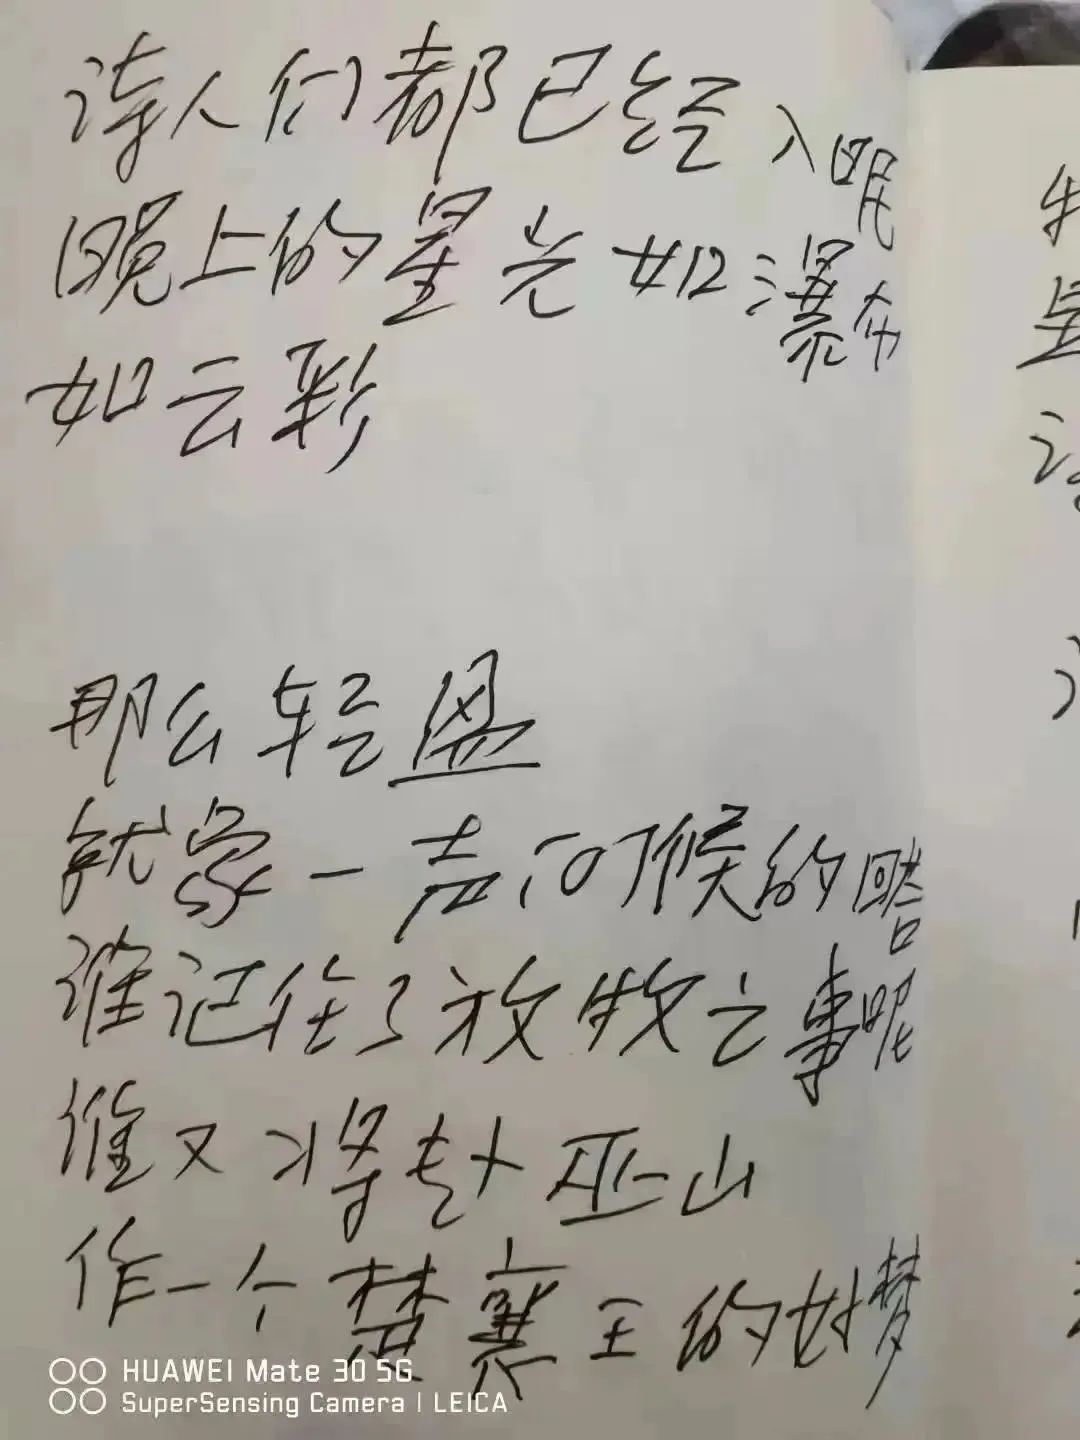 诗人们都已经入眠
晚上的星光如瀑布
如云彩
那么轻盈
就象一声问候的
谁记住了放牧之事呢
谁又将赴巫山
作一个楚襄王的好梦
HUAWEI Mate 30 5G
SuperSensing Camera | LEICA